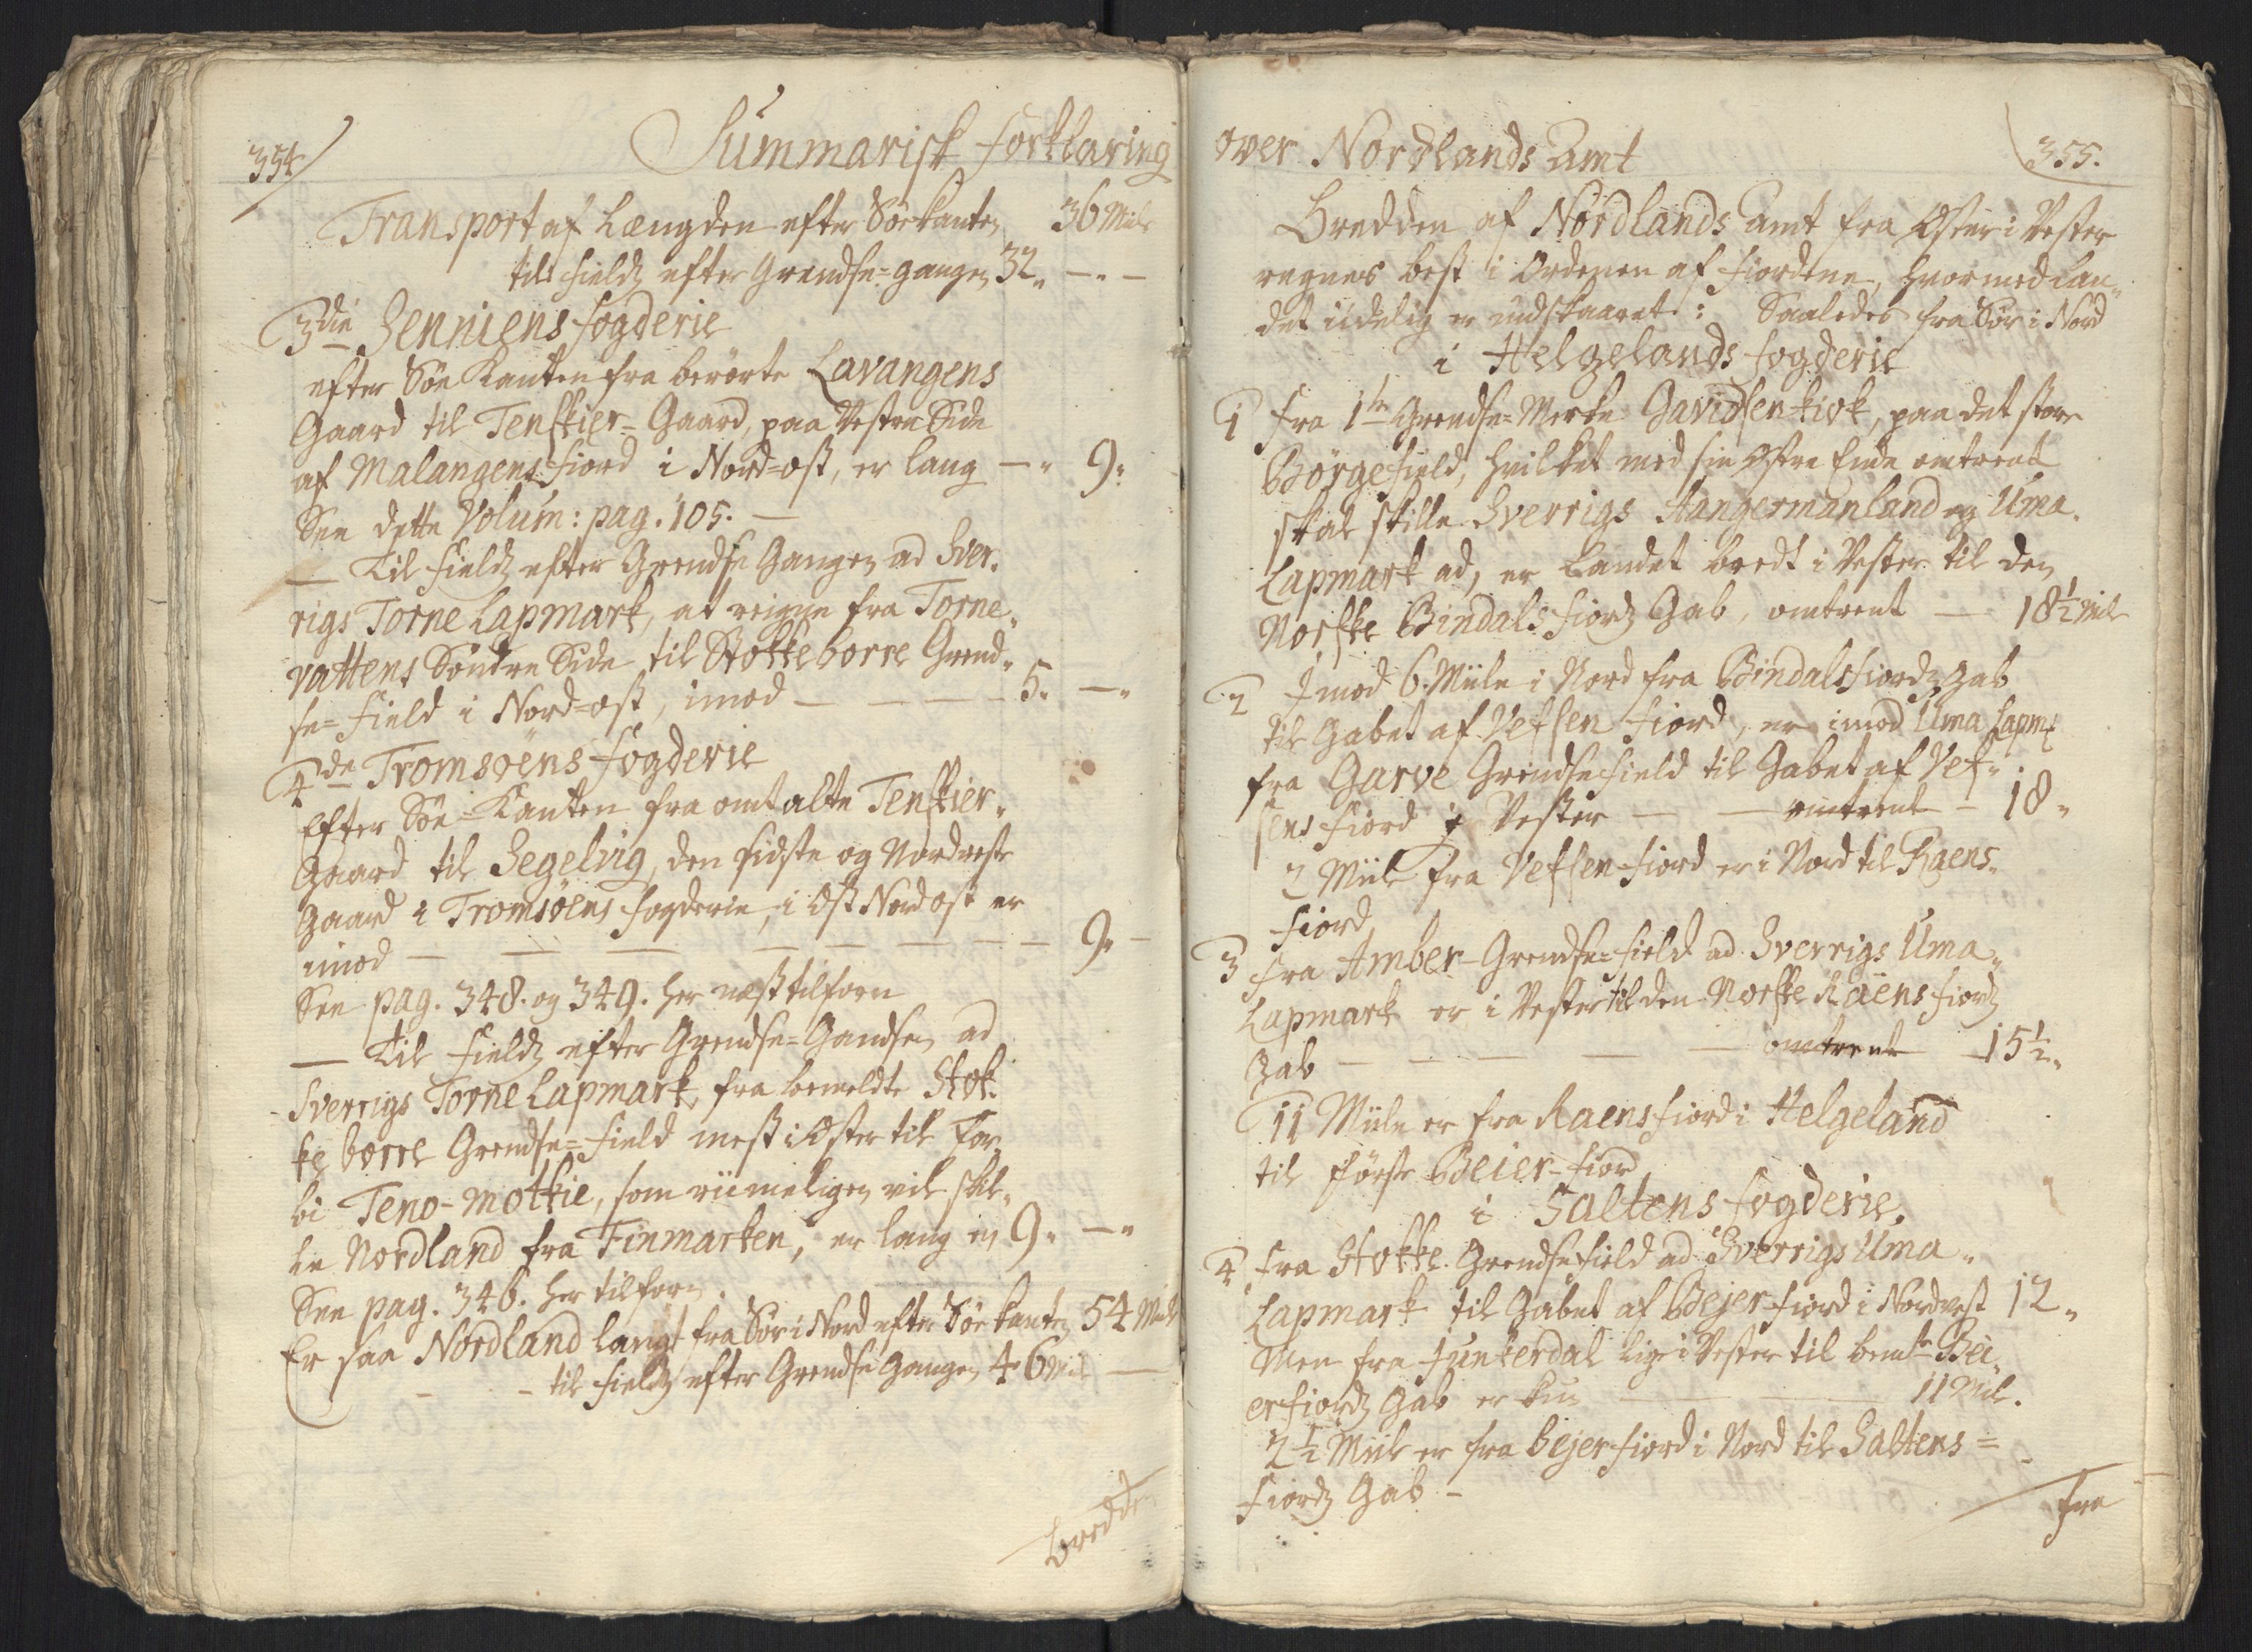 354
Summarisk forklaring
Transport af Længden efter Söe kanten 36 Mile
till fields efter Grendse=gangen 32„ —„—
3die Senniens fogderie
efter Söe Kanten fra berörte Lavangens
Gaard til Tenskier=Gaard, paa Vestre Side
af Malangens fiord i Nord=ost, er lang —„ 9„
See dette Volum: pag. 105. —
— Til fields efter Grendse Gangen ad Sver„
rigs Torne Lapmark, at reigne fra Torne„
vattens Söndre Side til Stokkeborre Grend„
se=field i Nord=ost, imod — — — — 5„ —„
4de Tromsöens fogderie
Efter Söe=Kanten fra omtalte Tenskier„
Gaard til Segelvig, den sidste og Nordreste
Gaard i Tromsöens fogderie, i Ost Nordost er
imod — — — — — — — — — 9„ —
See pag. 348. og 349. her næst tilforn
— Til fields efter Grendse=Gandsen ad
Sverrigs Torne Lapmark, fra bemeldte Stok„
ke borre Grendse=field mest i Oster til For„
bi Teno-Motkie, som riimeligen vil skil„
le Nordland fra Finmarken, er lang en 9„ —„
See pag. 346. her tilforn.
Er saa Nordland langt fra Sör i Nord efter Söe kanten 54 Mile
- - til fields efter Grendse Gangen 46 Mile —
bredde
over Nordlands amt
355.
Bredden af Nordlands amt fra Oster i Vester
regnes best i Ordenen af fiordene, hvormed Lan„
det idelig er udskaaret: Saaledes fra Sör i Nord
i Helgelands fogderie
1 fra 1te Grendse=Merke Gavidsenkiok, paa det store
Börgefield, hvilket med sin Ostre Ende omtrent
skal skille Sverrigs Aangermanland og Uma„
Lapmark ad, er Landet bredt i Vester til den
Norske Bindals fiords Gab, omtrent — 18½ Mile
2 Imod 6. Miile i Nord fra Bindalsfiords gab
til Gabet af Vefsen fiord, er imod Uma Lapmk
fra Garve Grendsefield til Gabet af Vef„
sens fiord i Vester — — omtrent — 18„
2 Miile fra Vefsen-fiord er i Nord til Raens„
fiord
3 fra Amber-Grendse=field ad Sverrigs Uma„
Lapmark er i Vester til den Norske Raens fiords
Gab — — — — — omtrent — 15½„
11 Miile er fra Raensfiord i Helgeland
til förste Beier-fiord
i Saltens fogderie.
4 fra Stokke Grendsefield ad Sverrigs Uma„
Lapmark til Gabet af Bejer-fiord i Nordvest 12„
Men fra Junkerdal lige i Vester til bemte Bei„
erfiords Gab er kun — — 11 Mile.
2½ Miile er fra Bejerfiord i Nord til Saltens=
fiords Gab —
fra